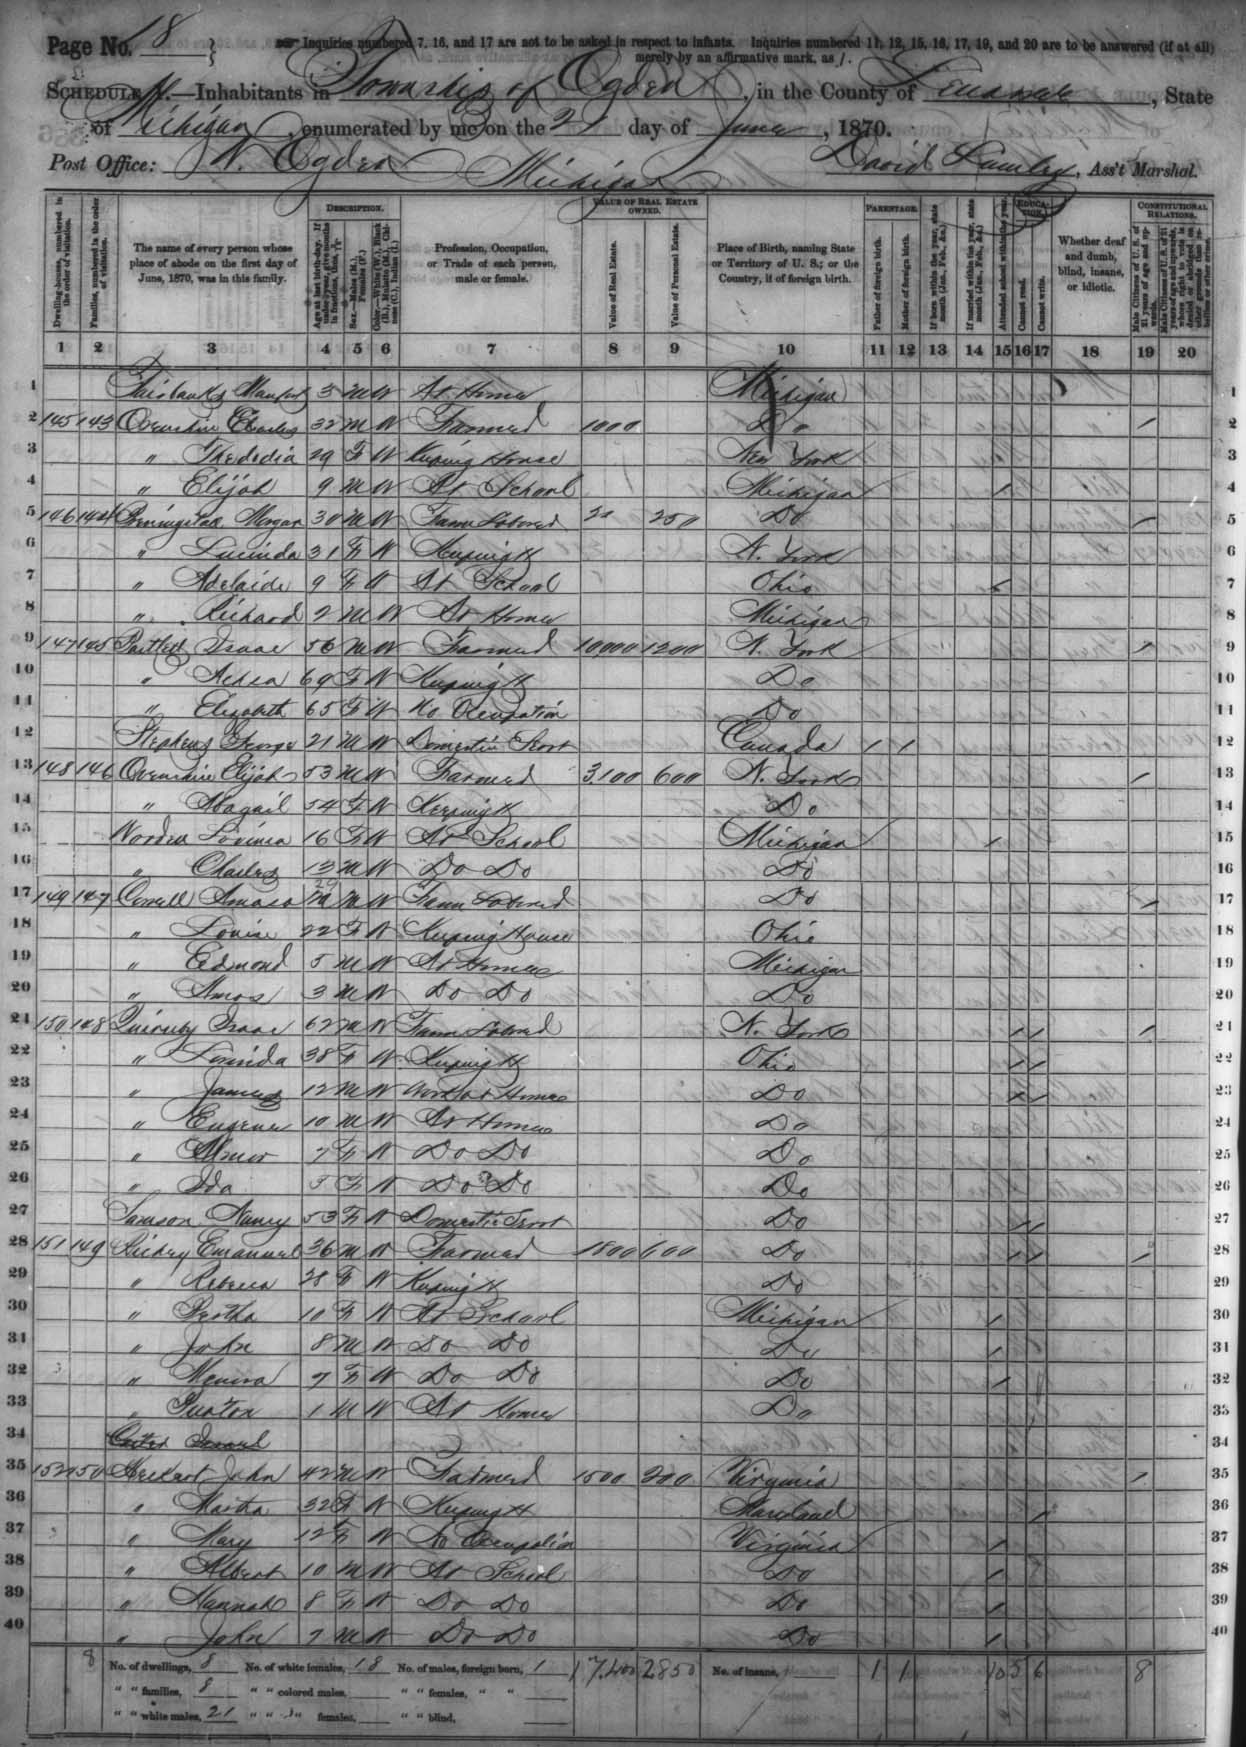 Page No. 18
Inquiries numbered 7, 16, and 17 are not to be asked in respect to infants. Inquiries numbered 11, 12, 15, 16, 17, 19, and 20 are to be answered (if at all)
merely by an affirmative mark, as /.
SCHEDULE 1.—Inhabitants in Township of Ogden, in the County of Lenawee, State
of Michigan, enumerated by me on the 21 day of June, 1870.
Post Office: N. Ogden Michigan David, Ass't Marshal.
Dwelling-houses, numbered in the order of visitation.
Families, numbered in the order of visitation.
The name of every person whose place of abode on the first day of June, 1870, was in this family.
DESCRIPTION.
Profession, Occupation, or Trade of each person, male or female.
VALUE OF REAL ESTATE OWNED.
Value of Real Estate.
Value of Personal Estate.
Place of Birth, naming State or Territory of U. S.; or the Country, if of foreign birth.
PARENTAGE.
Father of foreign birth.
Mother of foreign birth.
If born within the year, state month (Jan., Feb., &c.)
If married within the year, state month (Jan., Feb., &c.)
Attended school within the year.
EDUCATION.
Cannot read.
Cannot write.
Whether deaf and dumb, blind, insane, or idiotic.
CONSTITUTIONAL RELATIONS.
1 2 3 4 5 6 7 8 9 10 11 12 13 14 15 16 17 18 19 20
1 Fairbanks 3 M W At Home Michigan 1
2 145 143 Charles 32 M W Farmer 1000 Do / 2
3 " 29 F W Keeping House New York 3
4 " Elijah 9 M W At School Michigan / 4
5 146 144 Morgan 30 M W Farm Laborer 250 Do / 5
6 " Lucinda 31 F W Keeping H N. York 6
7 " Adelaide 9 F W At School Ohio / 7
8 " Richard 2 M W At Home Michigan 8
9 147 145 Bartlett Isaac 56 M W Farmer 10000 1200 N. York / 9
10 " Achsa 69 F W Keeping H Do 10
11 " Elizabeth 65 F W No Occupation Do 11
12 Stephens George 21 M W Domestic Servt Canada / / 12
13 148 146 Elijah 53 M W Farmer 3,100 600 N. York / 13
14 " Abagail 54 F W Keeping H Do 14
15 Lovinea 16 F W At School Michigan / 15
16 " Charles 13 M W Do Do Do 16
17 149 147 Amasa 29 M W Farm Laborer Do / 17
18 " Louise 22 F W Keeping House Ohio 18
19 " Edmond 5 M W At Home Michigan 19
20 " Amos 3 M W Do Do Do 20
21 150 148 Quimby Isaac 62 M W Farm Laborer N. York / / / 21
22 " 38 F W Keeping H Ohio / / 22
23 " James 12 M W Work at Home Do / / 23
24 " Eugene 10 M W At Home Do 24
25 " 7 F W Do Do Do 25
26 " Ida 5 F W Do Do Do 26
27 Samson Nancy 53 F W Domestic Servt Do / / 27
28 151 149 Richey Emanuel 36 M W Farmer 1800 600 Do / / / 28
29 " Rebecca 28 F W Keeping H Do 29
30 " Bertha 10 F W At School Michigan / 30
31 " John 8 M W Do Do Do / 31
32 " 7 F W Do Do Do / 32
33 " 1 M W At Home Do 33
34 34
35 152 150 John 42 M W Farmer 1500 200 Virginia / 35
36 " Martha 32 F W Keeping H Maryland / 36
37 " Mary 12 F W No Occupation Virginia / 37
38 " Albert 10 M W At School Do / 38
39 " Hannah 8 F W Do Do Do / 39
40 " John 7 M W Do Do Do / 40
8 No. of dwellings, 8 No. of white females, 18 No. of males, foreign born, 1 17,400 2850 No. of insane, 1 1 10 5 6 8
" " families, 8 " " colored males, " " females, " "
" " white males, 21 " " " females, " " blind,